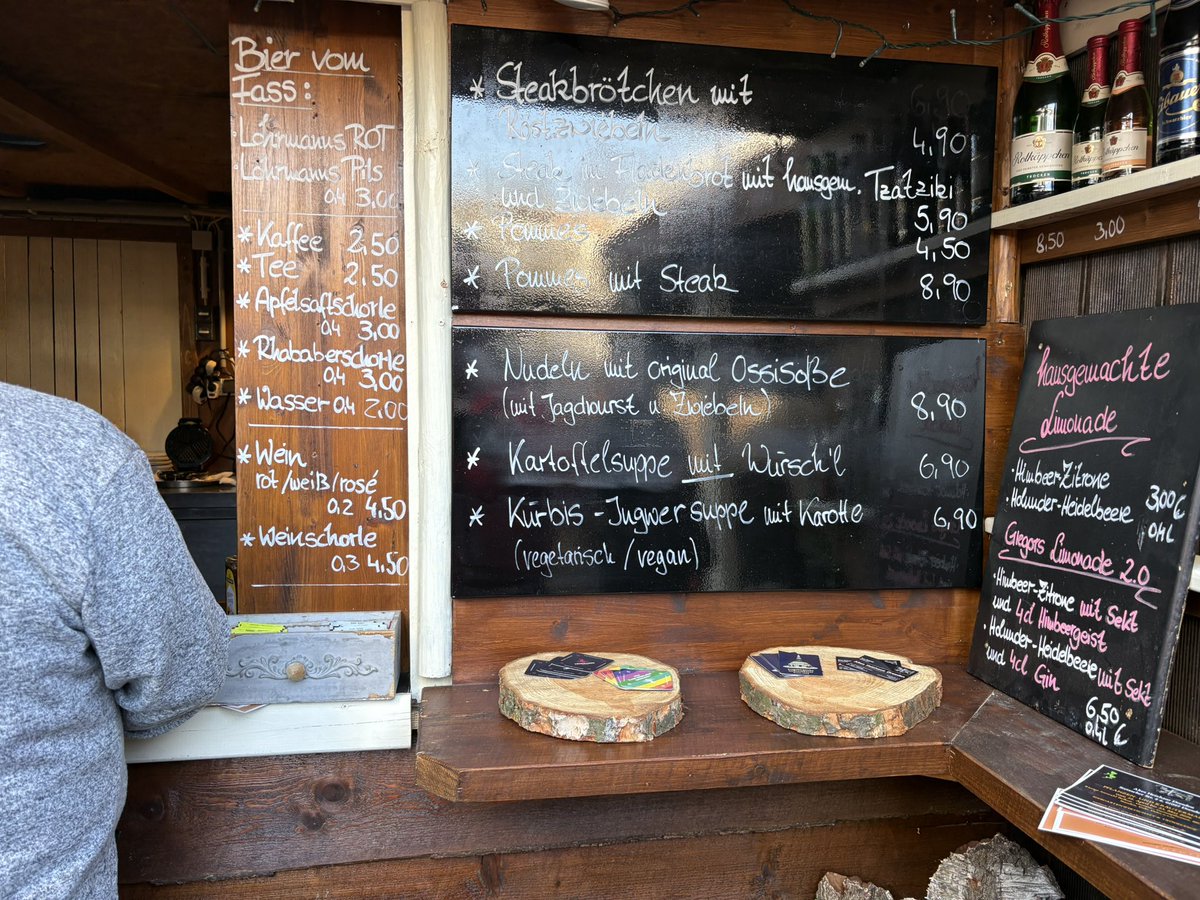 Bier vom
Fass:
Lohrmanns ROT
Lohrmanns Pils
0,4 3,00
* Kaffee 2,50
* Tee 2,50
* Apfelsaftschorle
0,4 3,00
* Rhababerschorle
0,4 3,00
* Wasser 0,4 2,00
* Wein
rot/weiß/rosé
0,2 4,50
* Weinschorle
0,3 4,50
* Steakbrötchen mit 6,90
Röstzwiebeln 4,90
* Steak im Fladenbrot mit hausgem. Tzatziki
und Zwiebeln 5,90
* Pommes 4,50
* Pommes mit Steak 8,90
* Nudeln mit original Ossisoße
(mit Jagdwurst u Zwiebeln) 8,90
* Kartoffelsuppe mit Würsch'l 6,90
* Kürbis-Ingwersuppe mit Karotte 6,90
(vegetarisch/vegan)
Rotkäppchen
TROCKEN
Rotkäppchen
Rotkäppchen
8,50 3,00
hausgemachte
Limonade
· Himbeer-Zitrone
· Holunder-Heidelbeere 3,00€
0,4L
Gregors Limonade 2.0
· Himbeer-Zitrone mit Sekt
und 4cl Himbeergeist
· Holunder-Heidelbeere mit Sekt
und 4cl Gin
6,50
0,4l €